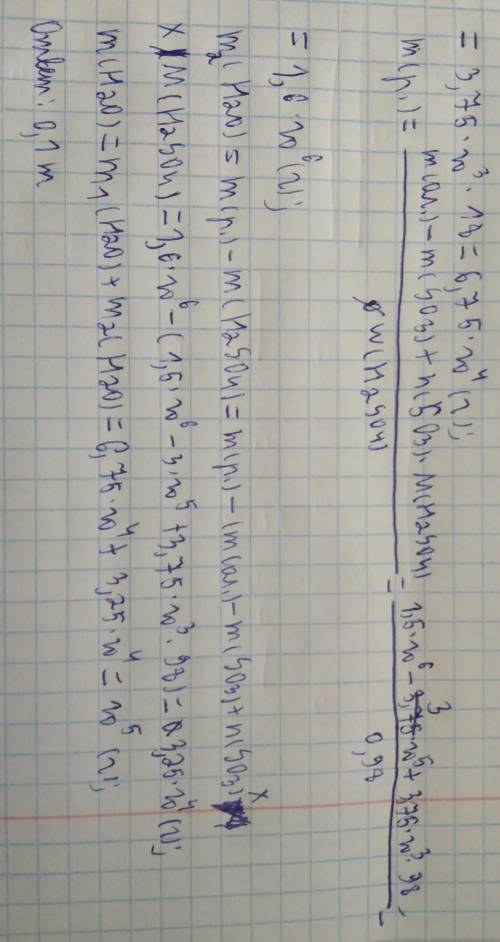 = 3,75·10³·18 = 6,75·10⁴ (г);
m(р.) = (m(ол.) - m(SO3) + n(SO3)·M(H2SO4)) / w(H2SO4) = (1,5·10⁶ - 3·10⁵ + 3,75·10³·98) / 0,98 =
= 1,6·10⁶ (г);
m₂(H2O) = m(р.) - m(H2SO4) = m(р.) - (m(ол.) - m(SO3) + n(SO3) ×
× M(H2SO4) = 1,6·10⁶ - (1,5·10⁶ - 3·10⁵ + 3,75·10³·98) = 3,25·10⁴ (г);
m(H2O) = m₁(H2O) + m₂(H2O) = 6,75·10⁴ + 3,25·10⁴ = 10⁵ (г);
Ответ: 0,1 т